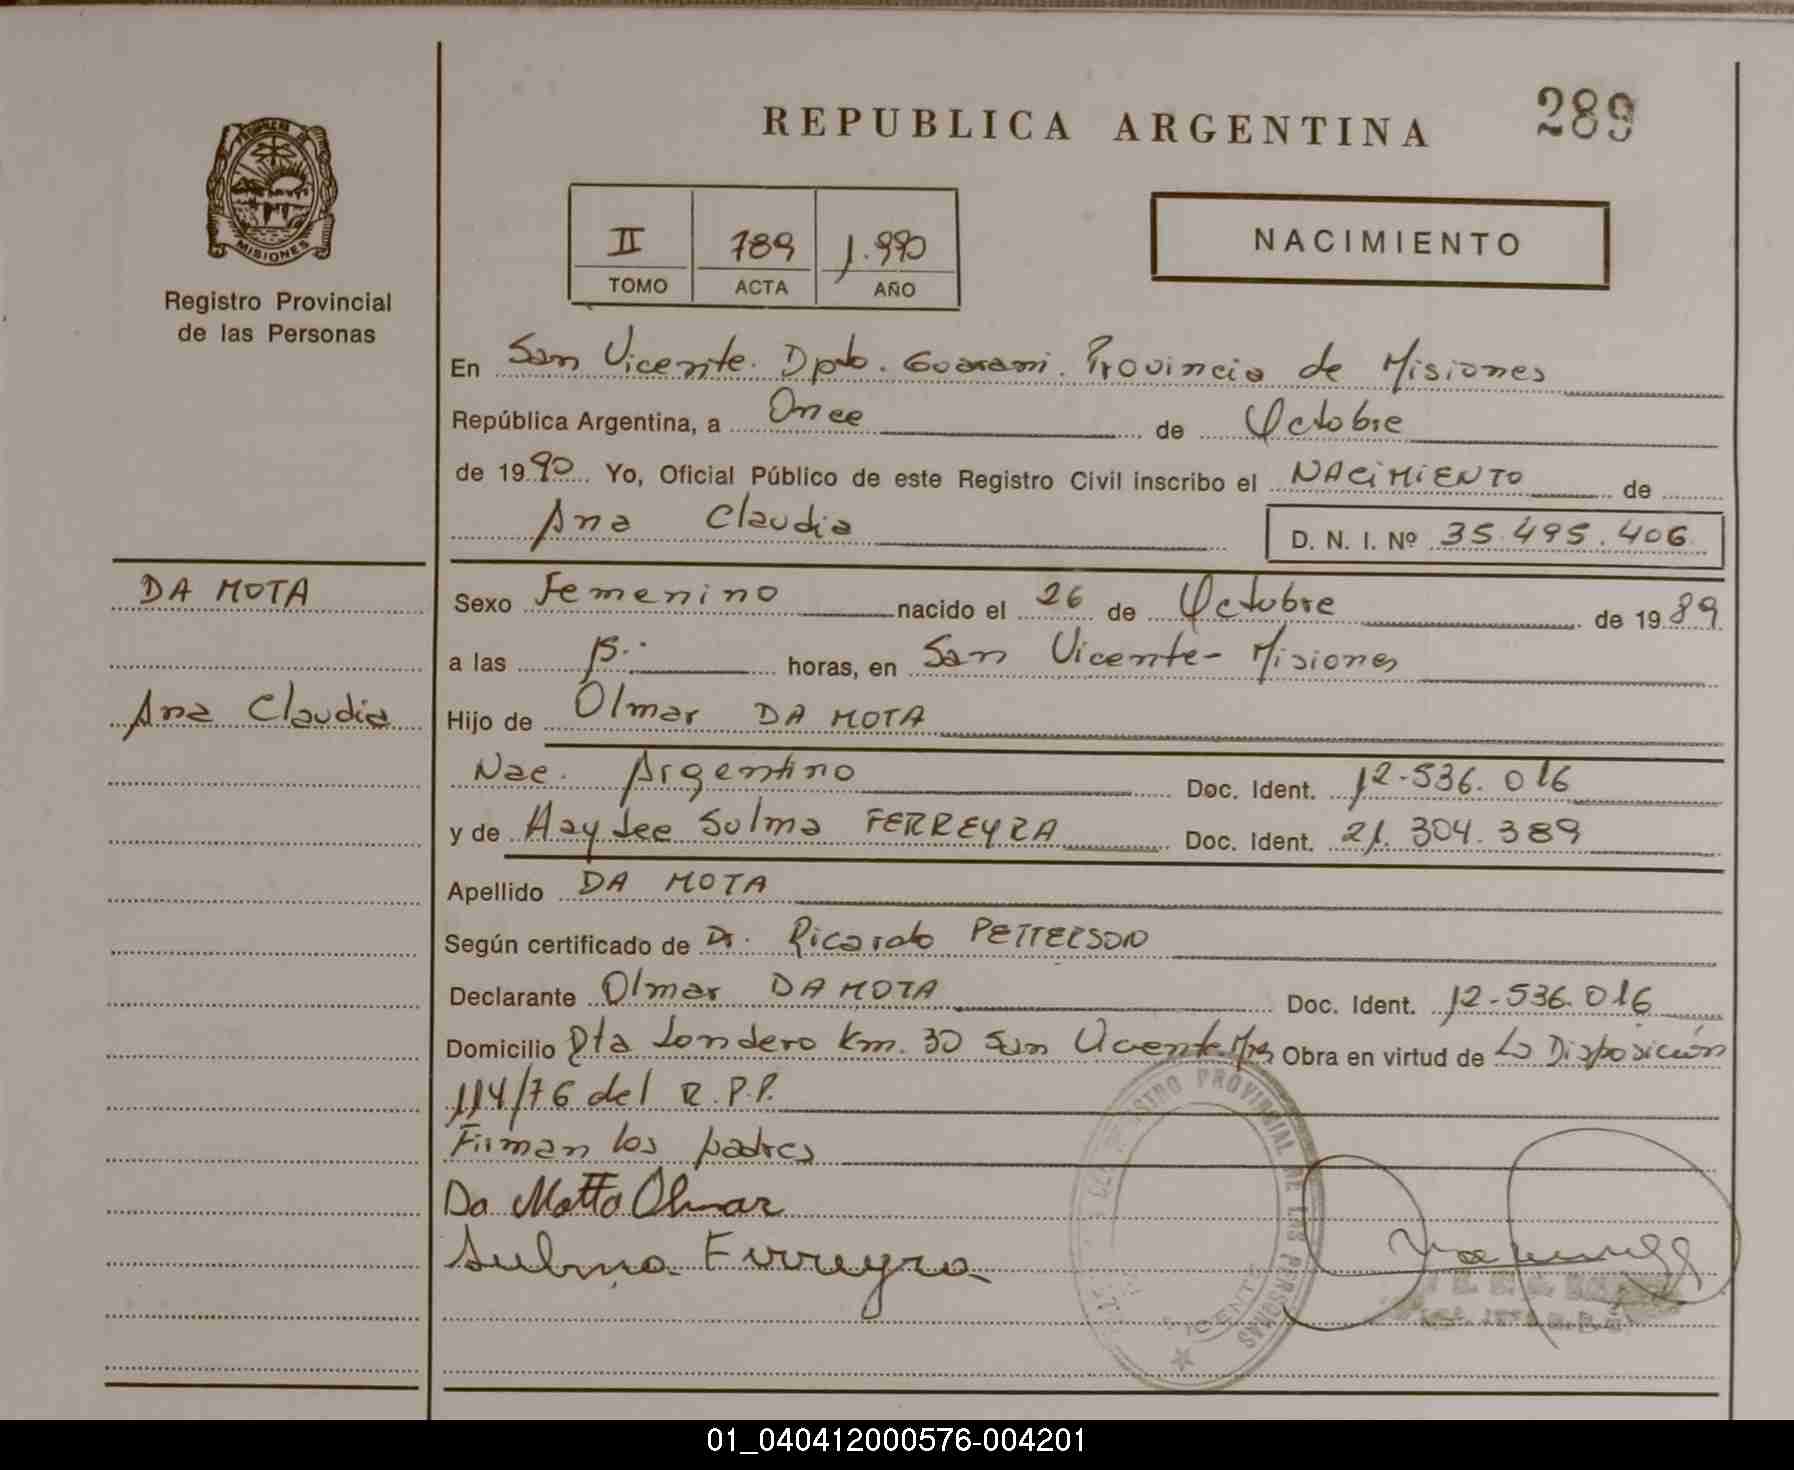 REPUBLICA ARGENTINA
289
MISIONES
Registro Provincial
de las Personas
II 789 1.990
TOMO ACTA AÑO
NACIMIENTO
En San Vicente. Dpto. Guarani. Provincia de Misiones
República Argentina, a Once de Octubre
de 1990 Yo, Oficial Público de este Registro Civil inscribo el NACIMIENTO de
Ana Claudia D. N. I. Nº 35.495.406
DA MOTA
Ana Claudia
Sexo Femenino nacido el 26 de Octubre de 1989
a las horas, en San Vicente - Misiones
Hijo de Olmar DA MOTA
Nac. Argentino Doc. Ident. 12-536.016
y de Haydee Sulma FERREYRA Doc. Ident. 21.304.389
Apellido DA MOTA
Según certificado de Dr. Ricardo PETTERSON
Declarante Olmar DA MOTA Doc. Ident. 12-536.016
Domicilio Pta Londero Km. 30 San Vicente Mnes Obra en virtud de La Disposición
114/76 del R.P.P.
Firman los padres
Da Motta Olmar
Sulma Ferreyra
REGISTRO PROVINCIAL DE LAS PERSONAS
VICENTE
01_040412000576-004201